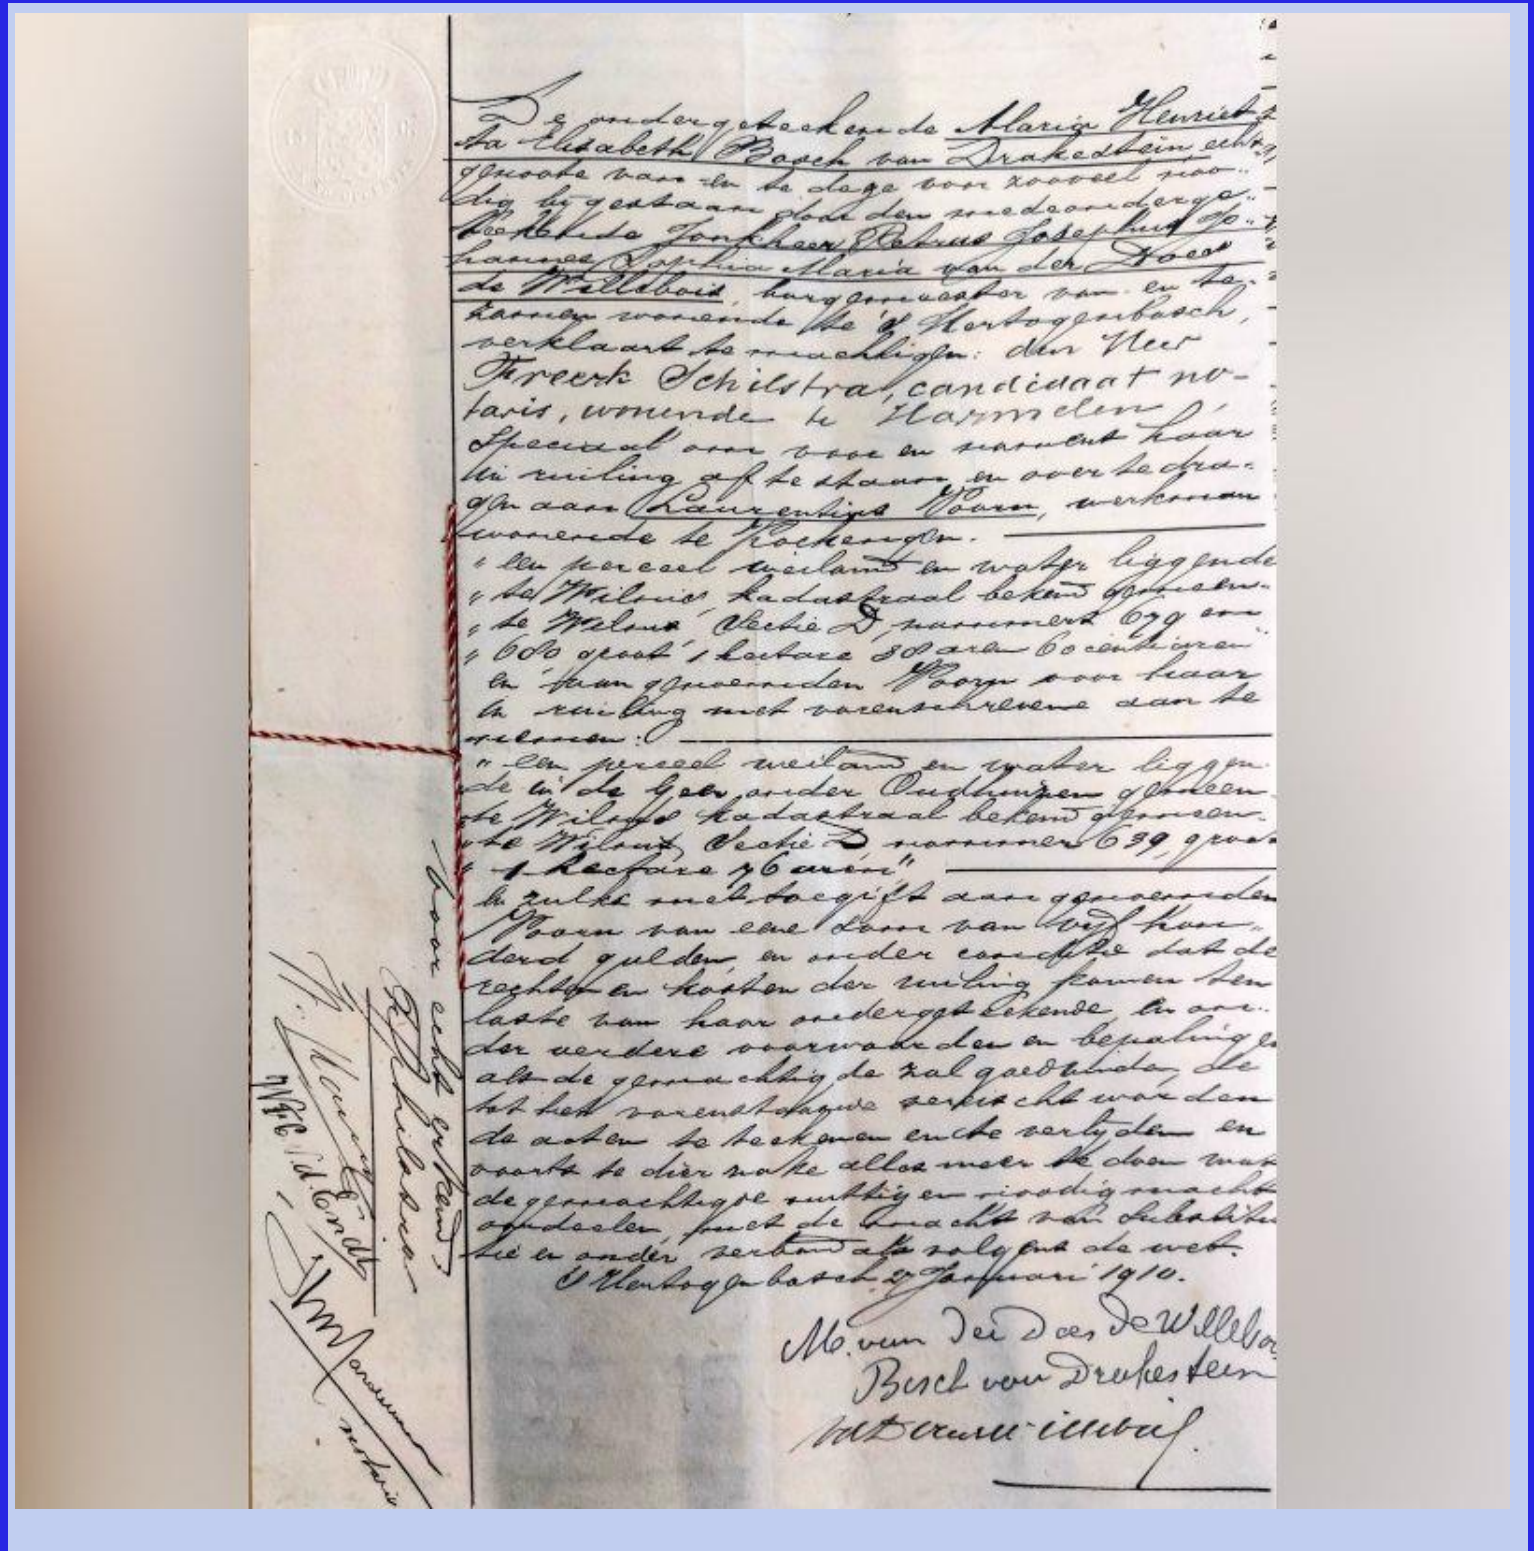 De ondergeteekende Maria Henriet-
ta Elisabeth Bosch van Drakestein echt-
genoote van en te dage voor zooveel noo-
dig bygestaan door den medeonderge-
teekende Jonkheer Petrus Josephus Jo-
hannes Sophia Maria van der Does
de Willebois, burgemeester van en te
zamen wonende te 's Hertogenbosch,
verklaart te machtigen: den Heer
Freerk Schilstra, candidaat no-
taris, wonende te Harmelen,
Speciaal om voor en namens haar
in ruiling af te staan en over te dra-
gen aan Laurentius Voorn, werkman
wonende te Kockengen.
" een perceel weiland en water liggende
" te Wilnis, kadastraal bekend gemeen-
" te Wilnis, Sectie D, nummers 679 en
" 680 groot 1 hectare 88 aren 60 centiaren
en van genoemden Voorn voor haar
in ruiling met vorenschrevene aan te
nemen:
" een perceel weiland en water liggen-
de in de Geer onder Oudhuizen gemeen-
te Wilnis kadastraal bekend gemeen-
" te Wilnis, Sectie D nummer 639, groot
" 1 hectare 76 aren"
en zulks met toegift aan genoemden
Voorn van eene som van vijf hon-
derd gulden, en onder conditie dat de
rechten en kosten der ruiling komen ten
laste van haar ondergeteekende, en on-
der verdere voorwaarden en bepalingen
als de gemachtigde zal goedvinden, de
tot het vorenstaande vereischt worden
de acten te teekenen en te verlyden en
voorts te dier zake alles meer te doen wat
de gemachtigde nuttig en noodig mocht
oordeelen, met de macht van Substitu
tie en onder verband als volgens de wet.
's Hertogenbosch 27 Januari 1910.
M. van der Does de Willebois
Bosch van Drakestein
Voor echt erkend
F Schilstra
notaris